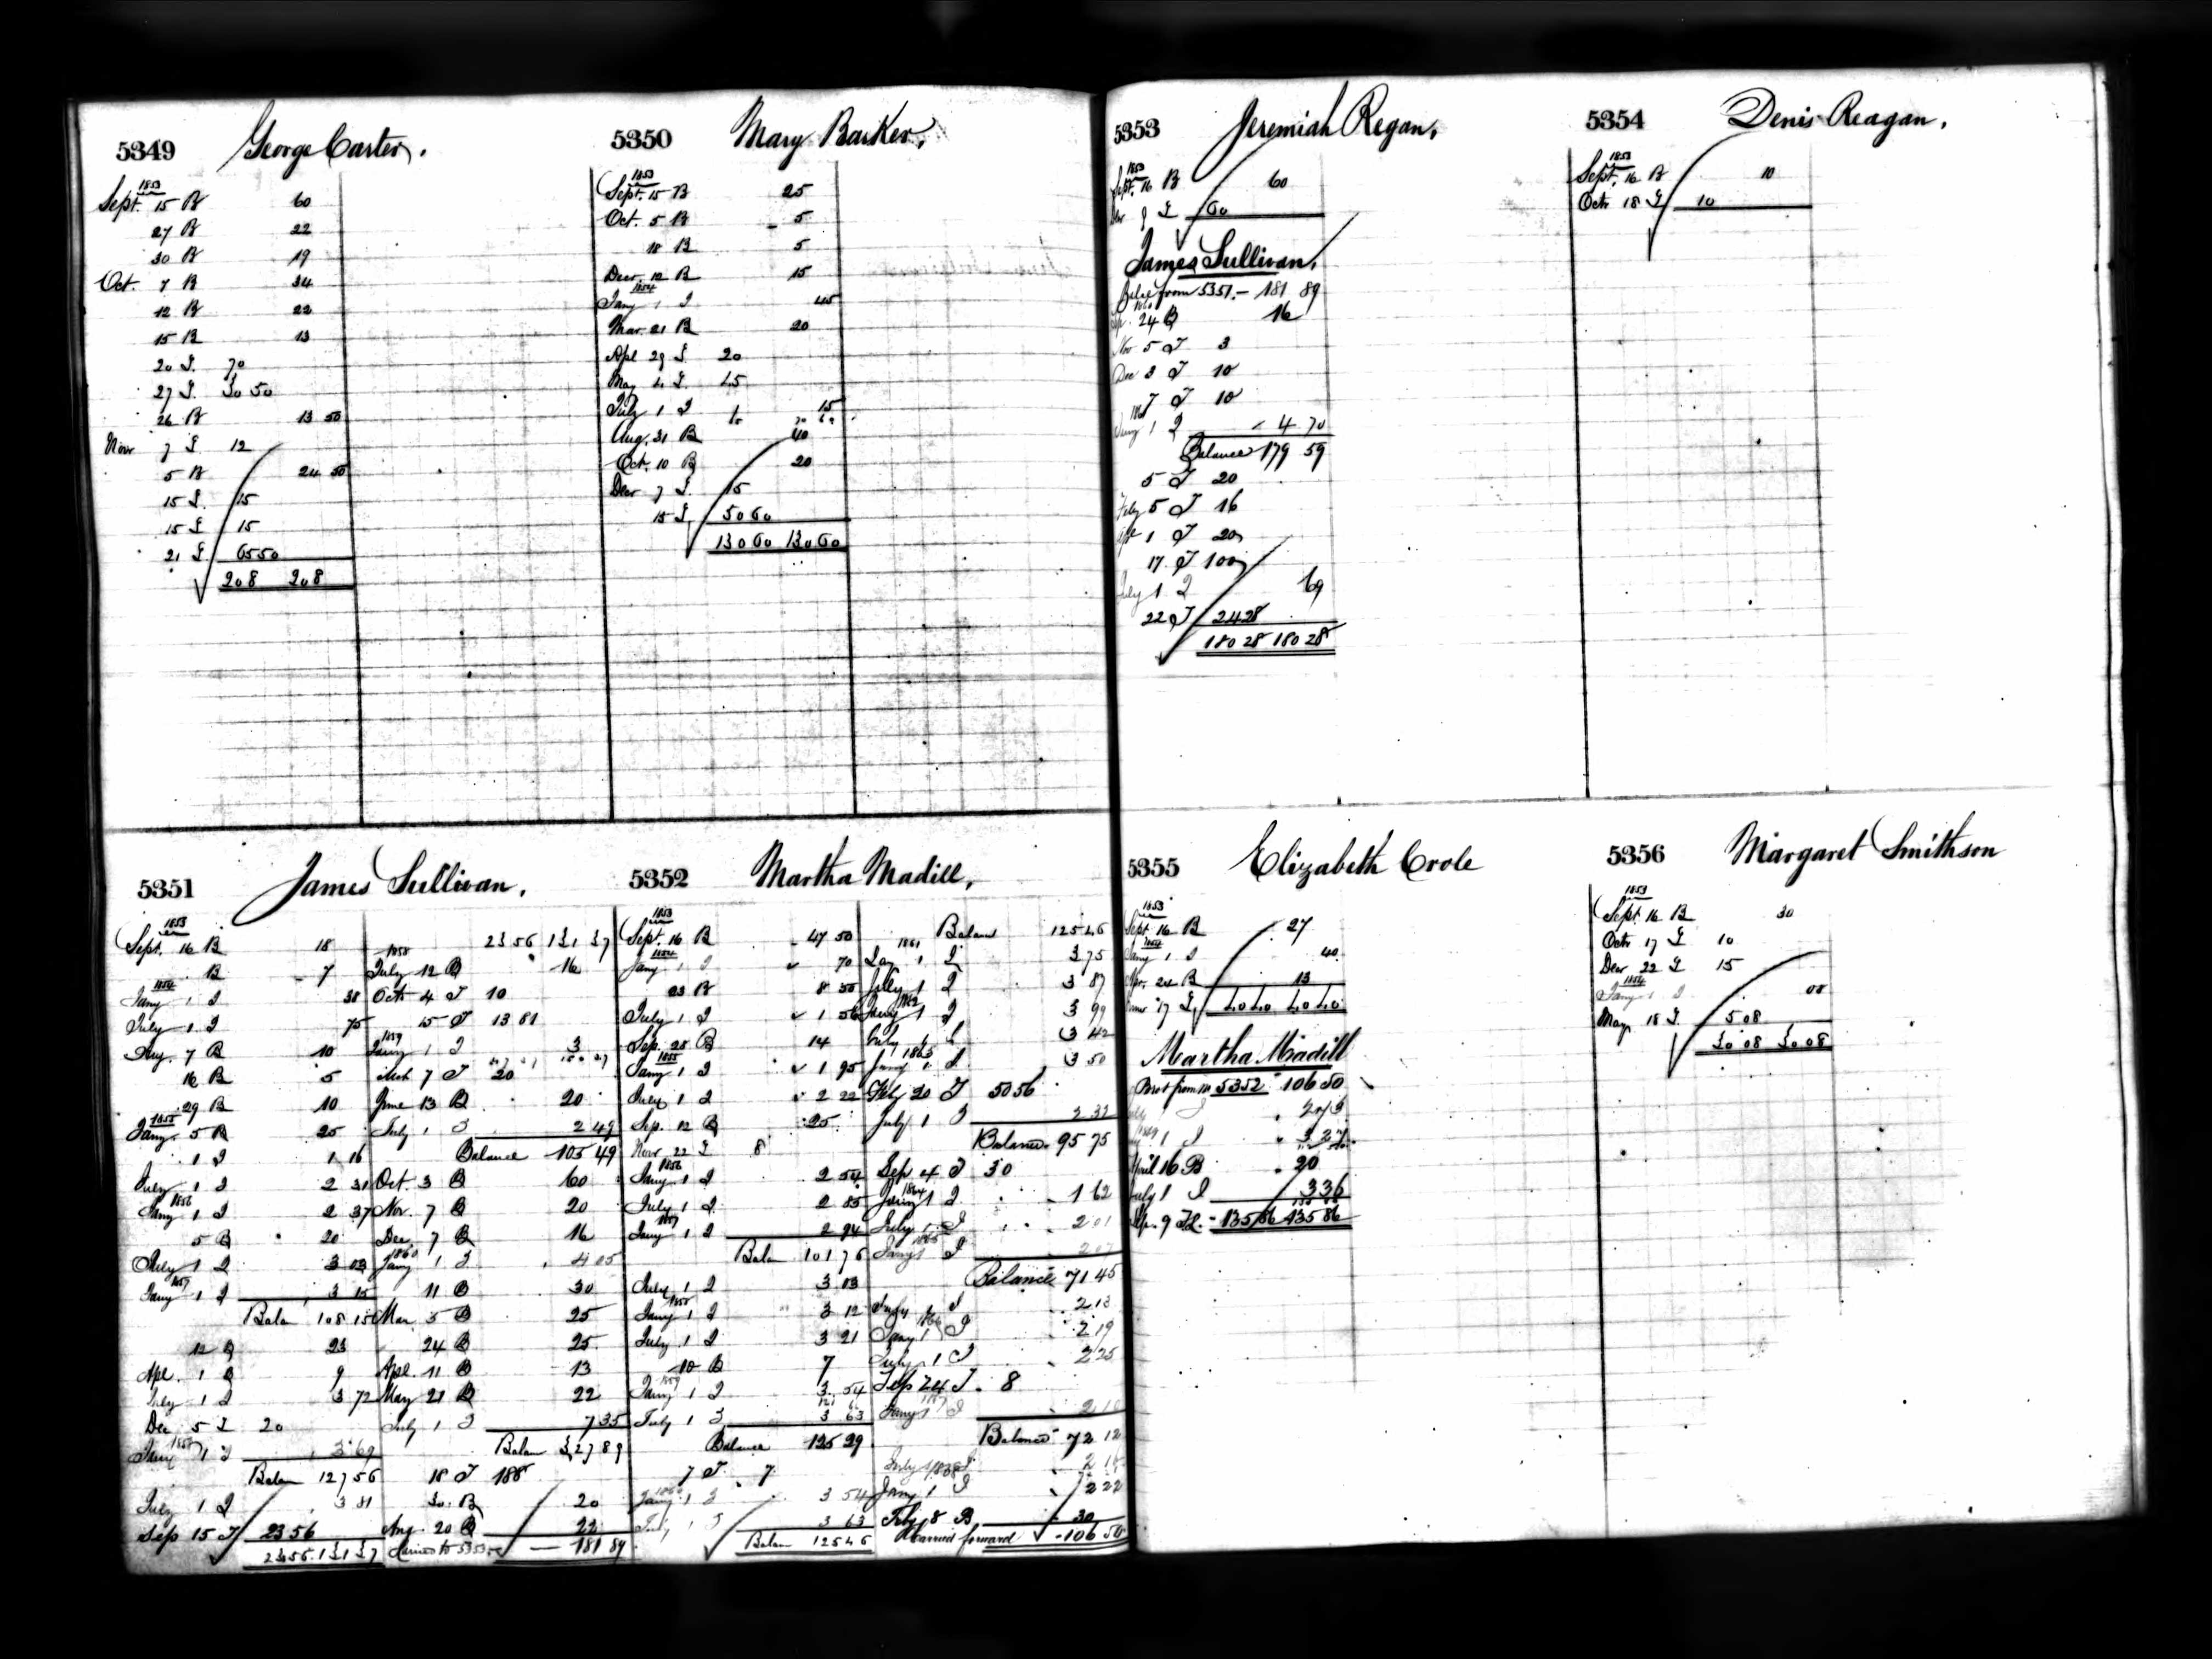 5349 George Carter.
1853
Sept. 15 B 60
27 B 22
30 B 19
Oct. 7 B 34
12 B 22
15 B 13
20 I. 70
27 I. 30 50
26 B 13 50
Novr 7 I. 12
5 B 24 50
15 I. 15
15 I 15
21 I. 65 50
208 208
5350 Mary Barker,
1853
Sept. 15 B 25
Oct. 5 B 5
18 B 5
Decr. 12 B 15
1854
Jany 1 I 45
Mar. 21 B 20
Apl 29 I. 20
May 4 I. 45
July 1 I 15
Aug. 31 B 40
Oct. 10 B 20
Decr 7 I. 15
15 I. 50 60
130 60 130 60
5351 James Sullivan,
1853
Sept. 16 B 18
B 7
1854
Jany 1 I 38
July 1 I 75
Aug. 7 B 10
16 B 5
29 B 10
1855
Jany. 5 B 25
1 I 1 16
July 1 I 2 31
1856
Jany 1 I 2 37
5 B 20
July 1 I 3 03
1857
Jany 1 I 3 15
Balan 108 15
12 B 23
Apl. 1 B 9
July 1 I 3 72
Dec 5 I 20
1858
Jany 1 I 3 69
Balan 127 56
July 1 I 3 81
Sep 15 I 23 56
23 56 131 37
23 56 131 37
1858
July 12 B 16
Octr 4 I 10
15 I 13 81
1859
Jany 1 I 3
Mch 7 I 20
June 13 B 20
July 1 I 2 49
Balance 105 49
Oct. 3 B 60
Nov. 7 B 20
Dec. 7 B 16
1860
Jany 1 I 4 05
11 B 30
Mar 5 B 25
24 B 25
Apl. 11 B 13
May 21 B 22
July 1 I 7 35
Balan 327 89
18 I 188
30 B 20
Aug. 20 B 22
Carried to 5353 181 89
5352 Martha Madill,
1853
Sept. 16 B 47 50
1854
Jany 1 I 70
23 B 8 50
July 1 I 1 56
Sep. 28 B 14
1855
Jany 1 I 1 95
July 1 I 2 22
Sep. 12 B 25
Novr 22 I 8
1856
Jany 1 I 2 54
July 1 I 2 85
1857
Jany 1 I 2 94
Balan 101 76
July 1 I 3 03
1858
Jany 1 I 3 12
July 1 I 3 21
10 B 7
1859
Jany 1 I 3 54
July 1 I 3 63
Balance 125 29
7 I 7
1860
Jany 1 I 3 54
July 1 I 3 63
Balan 125 46
Balance 125 46
1861
Jany 1 I 3 75
July 1 I 3 87
1862
Jany 1 I 3 99
July 1 I 3 42
1863
Jany 1 I 3 50
Feby 20 I 50 56
July 1 I 2 32
Balance 95 75
Sep 4 I 30
1864
Jany 1 I 1 62
July 1 I 2 01
1865
Jany 1 I
Balance 71 45
July 1 I 2 13
1866
Jany 1 I 2 19
July 1 I 2 25
Sep 24 I 8
1867
Jany 1 I
Balance 72 12
July 1 I 2 16
1868
Jany 1 I 2 22
Feby 8 B 30
Carried forward 106 50
5353 Jeremiah Regan,
1853
Sept. 16 B 60
Decr 9 I 60
James Sullivan,
Balce from 5351 - 181 89
1860
24 B 16
Nov 5 I 3
Dec 3 I 10
7 I 10
Jany 1 I 4 70
Balance 179 59
5 I 20
Feby 5 I 16
1 I 20
17 I 100
July 1 I 69
22 I 24 28
180 28 180 28
5354 Denis Reagan,
1853
Sept. 16 B 10
Octr 18 I 10
5355 Elizabeth Crole
1853
Sept. 16 B 27
1854
Jany 1 I 40
Apr. 24 B 13
17 I 40 40 40 40
Martha Madill
Brot from 5352 106 50
1869
1 I 3 27
April 16 B 20
July 1 I 3 36
Sep. 9 I 135 86 135 86
5356 Margaret Smithson
1853
Sept. 16 B 30
Octr 17 I 10
Decr 22 I 15
1854
Jany 1 I 08
May 18 I 5 08
30 08 30 08